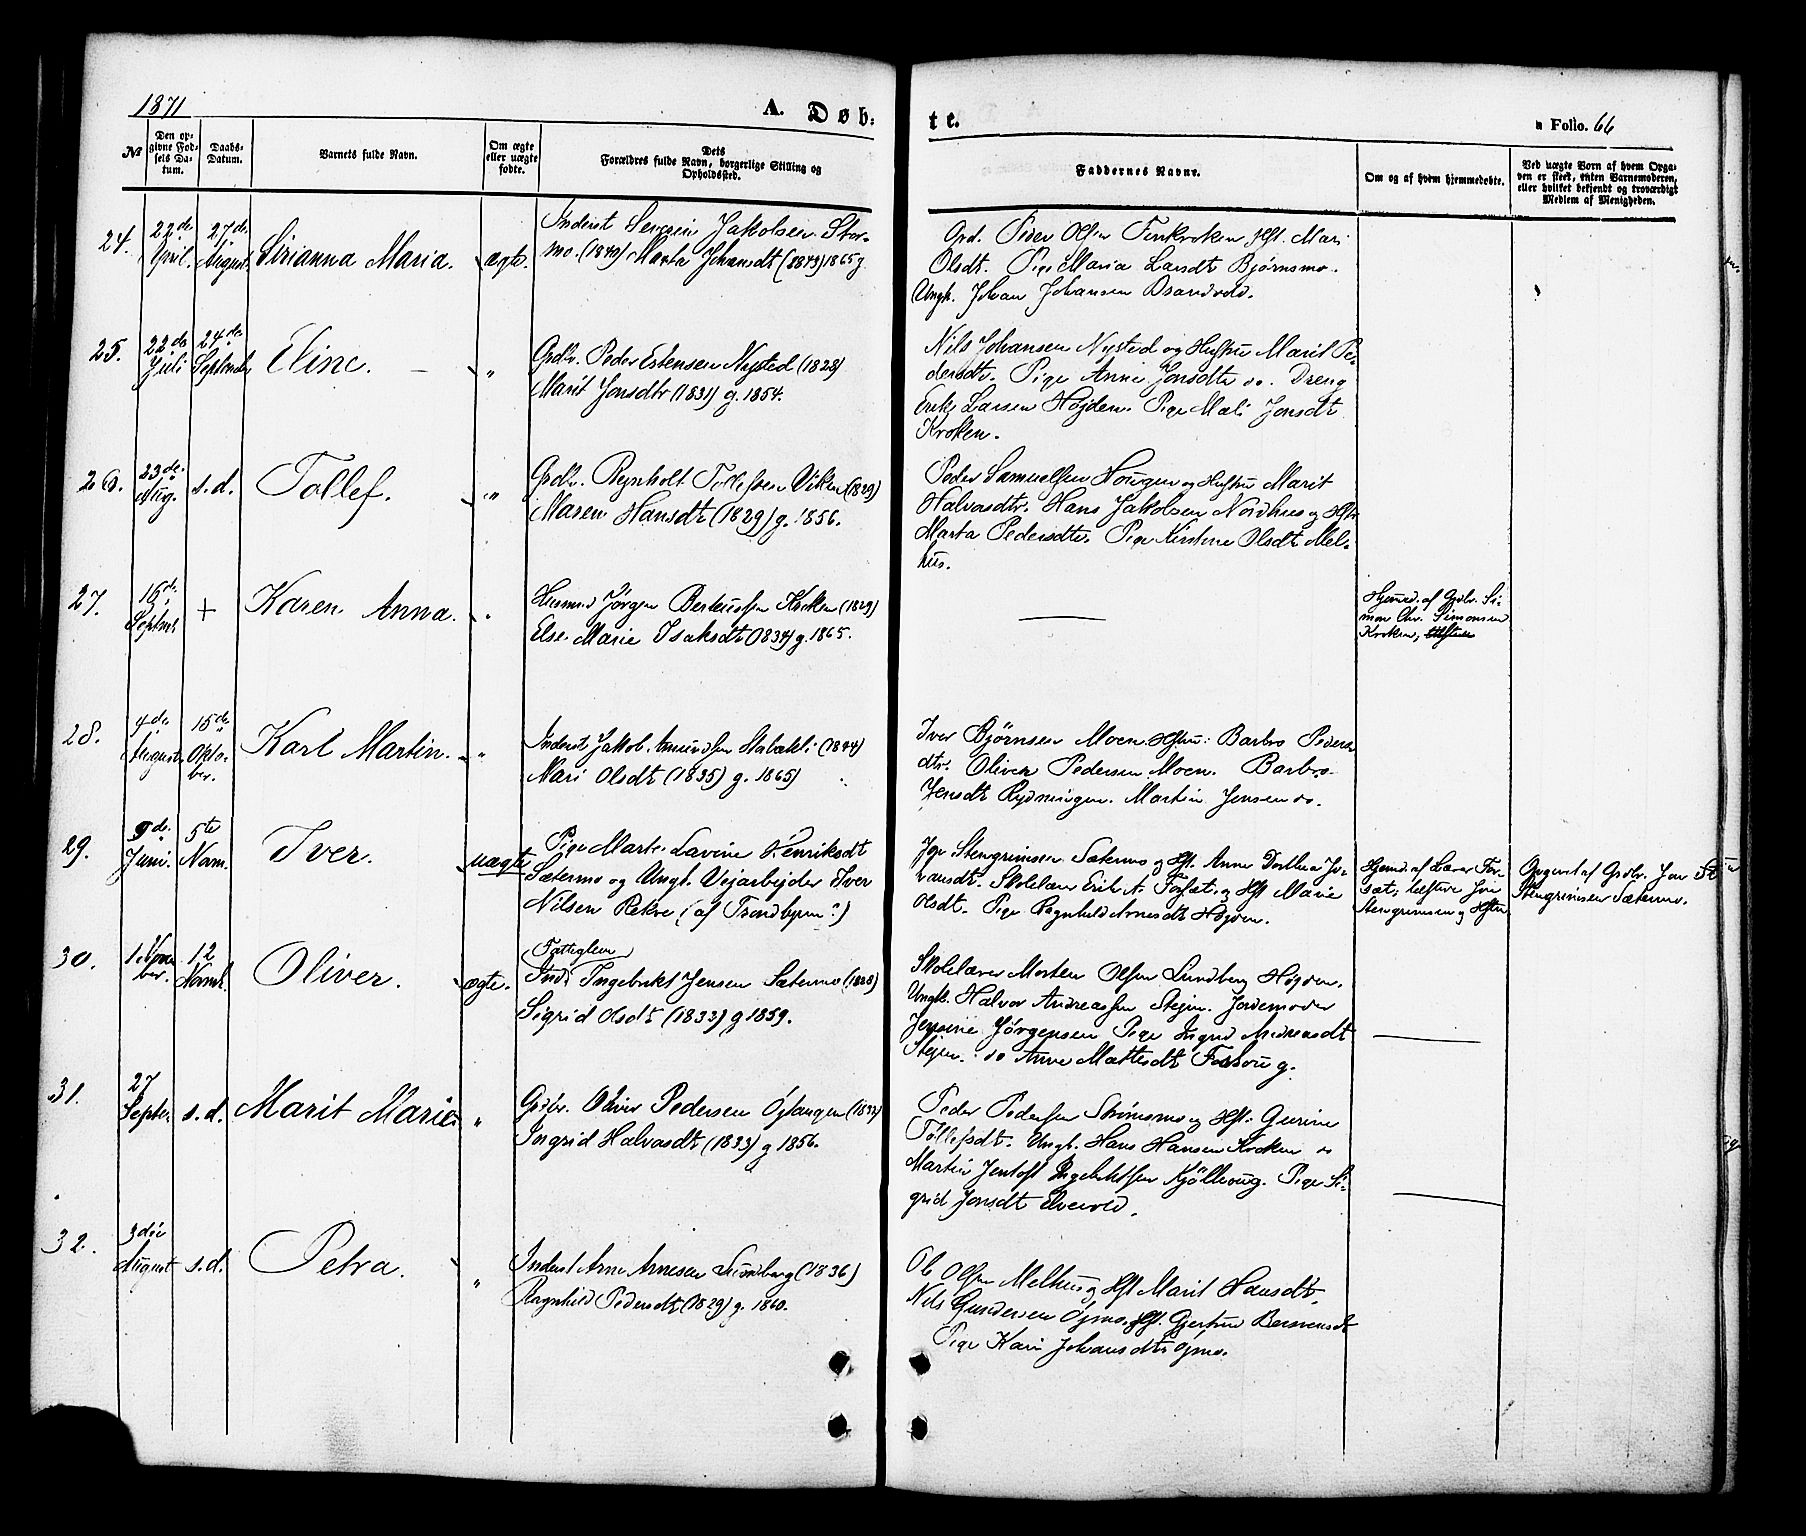 1871
A. Døb-
te.
Folio. 66
No
Den op-
givne Fød-
sels Da-
tum.
Daabs-
Datum.
Barnets fulde Navn.
Om ægte
eller uægte
fødte.
Dets
Forældres fulde Navn, borgerlige Stilling og
Opholdssted.
Faddernes Navne.
Om og af hvem hjemmedøbt.
Ved uægte Børn af hvem Opga-
ven er skeet, enten Barnemoderen,
eller hvilket bekjendt og troværdigt
Medlem af Menigheden.
24.
22de
April.
27de
August.
Sirianna Maria.
ægte.
Inderst Severin Jakobsen Stor-
mo. (1840) Marta Johansdt (1843) 1865 g.
Grd. Peder Olsen Finkroken Hst. Mari
Olsdt. Pige Maria Larsdt Bjørnsmo.
Ungk. Johan Johansen
25.
22de
Juli
24de
Septembr
Eline.
"
Grdbr. Peder Estensen Nysted (1828)
Marit Jonsdtr (1831) g. 1854.
Nils Johansen Nysted og Hustru Marit Pe-
dersdt. Pige Anne Jonsdtr do. Dreng
Erik Larsen Højden. Pige Mali Jonsdt
Kroken.
26.
23de
Aug.
s. d.
Tollef.
"
Grdbr. Reynholt Tollefsen Viken (1829)
Maren Hansdt (1829) g. 1856.
Peder Samuelsen Hougen og Hustru Marit
Halvasdtr. Hans Jakobsen Nordhus og Hst.
Marta Pedersdtr. Pige Kirstine Olsdt Mel-
hus.
27.
16de
Septmb.
+
Karen Anna.
"
Husmd Jørgen Berteussen Kroken (1829)
Else Marie Isaksdt (1834) g. 1865.
Hjemd. af Grdbr. Si-
mon Chr. Simonsen
Kroken,
28.
4de
August.
15de
Okto-
ber.
Karl Martin.
"
Inderst Jakob Amundsen (1844)
Mari Olsdt (1835) g. 1865)
Iver Bjørnsen Moen Hstru: Barbro Peders
dtr. Oliver Pedersen Moen. Barbro
Jensdt Rydningen. Martin Jensen do.
29.
9de
Juni.
5te
Novm.
Iver.
uægte
Pige Marte Lavine Henriksdt
Sætermo og Ungk. Vejarbejder Iver
Nilsen Rekve (af Trondhjem?)
Jon Stengrimsen Sætermo og Hst. Anne Dorthea Jo-
hansdt. Skolelærer Erik A. Forsæt og Hst Marie
Olsdt. Pige Ragnhild Arnesdt Højden.
Hjemd. af Lærer For-
sæt; Jon
Stengrimsen og Hstru
Opgivet af Grdbr. Jon St
Stengrimsen Sætermo.
30.
1 Novem
ber.
12
Novmb.
Oliver.
ægte.
Fattiglem
Ind. Ingebrikt Jensen Sætermo (1828)
Sigrid Olsdt (1833) g 1859.
Skolelærer Morten Olsen Lundberg Højden.
Ungk. Halvor Andreassen Stejen. Jordemoder
Jensine Jørgensen Pige Ingrid Andreasdt
Stejen. do Anne Mattisdt
31.
27
Septbr.
s. d.
Marit Marie.
"
Grdbr. Oliver Pedersen Østangen (1832)
Ingrid Halvasdt (1833) g 1856.
Peder Pedersen Strømsmo og Hst. Gurine
Tollefsdt. Ungk. Hans Hansen Kroken do
Martin Jentoft Ingebriktsen Kjølhoug. Pige Si-
grid Jonsdt Elvevold.
32.
3die
August
s. d.
Petra.
"
Inderst Arne Arnesen Lundberg (1836)
Ragnhild Pedersdt (1829) g. 1860.
Ole Olsen Melhus og Hst Marit Hansdt.
Nils Gundersen Øjmo, Hst. Gjertrud Berntsdt
Pige Kari Johansdt Øjmo.